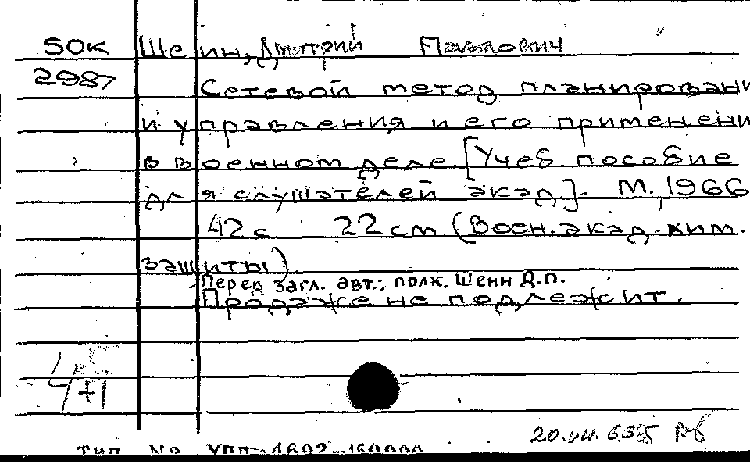 50к Шеин, Дмитрий Павлович
2987 Сетевой метод планировани
и управления и его применени
в военном деле [Учеб. пособие
для слушателей акад.]. М., 1966
42 с 22 см (Воен. акад. хим.
защиты).
Перед загл. авт.: полк. Шеин Д.П.
Продаже не подлежит.
4+1
Тип. No УПП-4602-160000